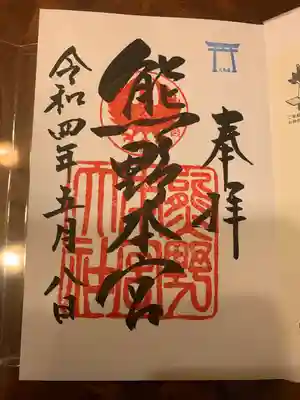 奉拝
熊野本宮
熊野本宮大社
令和四年五月八日